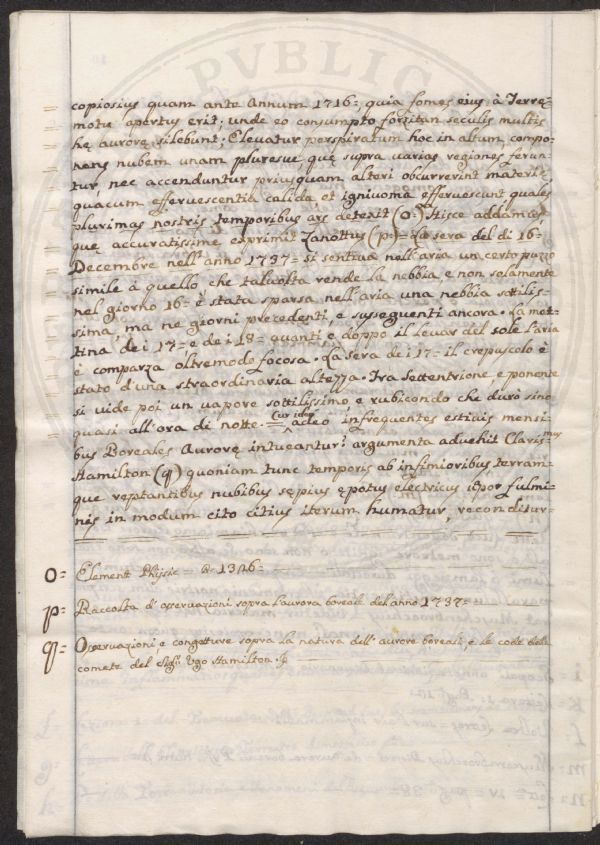 copiosius quam ante Annum 1716=, quia fomes ejus, à Terræ-
motu apertus erit; unde eo consumpto forsitan seculis multis
hę aurorę silebunt; Elevatur perspiratum hoc in altum, compo-
nens nubem unam pluresve, quę supra varias regiones ferun-
tur, nec accenduntur priusquam alteri obcurrerint materię
quacum effervescentia calida, et ignivoma effervescunt quales
plurimas nostris temporibus ars detexit (o=) Hisce addamus,
quę accuratissime exprimit Zanottus (p=) = La sera del di 16=
Decembre nell'anno 1737= si sentiva nell'aria un certo puzzo
simile à quello, che taluolta rende la nebbia, e non solamente
nel giorno 16= è stata sparsa nell'aria una nebbia sottilis-
sima, ma ne giorni precedenti, e susseguenti ancora. La mat-
tina de i 17= e de i 18= avanti, e doppo il levar del sole l'aria
è comparza oltremodo focosa. La sera de i 17= il crepuscolo è
stato d'una straordinaria altezza. Tra Settentrione, e ponente
si vide poi un vapore sottilissimo e rubicondo che durò sino
quasi all'ora di notte. = Cur adeo infrequentes estivis mensi-
bus Boreales Aurorę intueantur? argumenta advehit Claris.mus
Hamilton (q) quoniam tunc temporis ab infimioribus terram-
que reptantibus nubibus sępius ępotus electricus vapor fulmi-
nis in modum cito citius iterum humatur, reconditur-
o= Element Phijsic = 1306=
p= Raccolta d'oservazioni sopra l'aurora boreale del anno 1737=
q= Oservazioni e congetture sopra la natura dell'aurore boreali, e le code delle
comete del Sig.r Ugo Hamilton.
PVBLIC